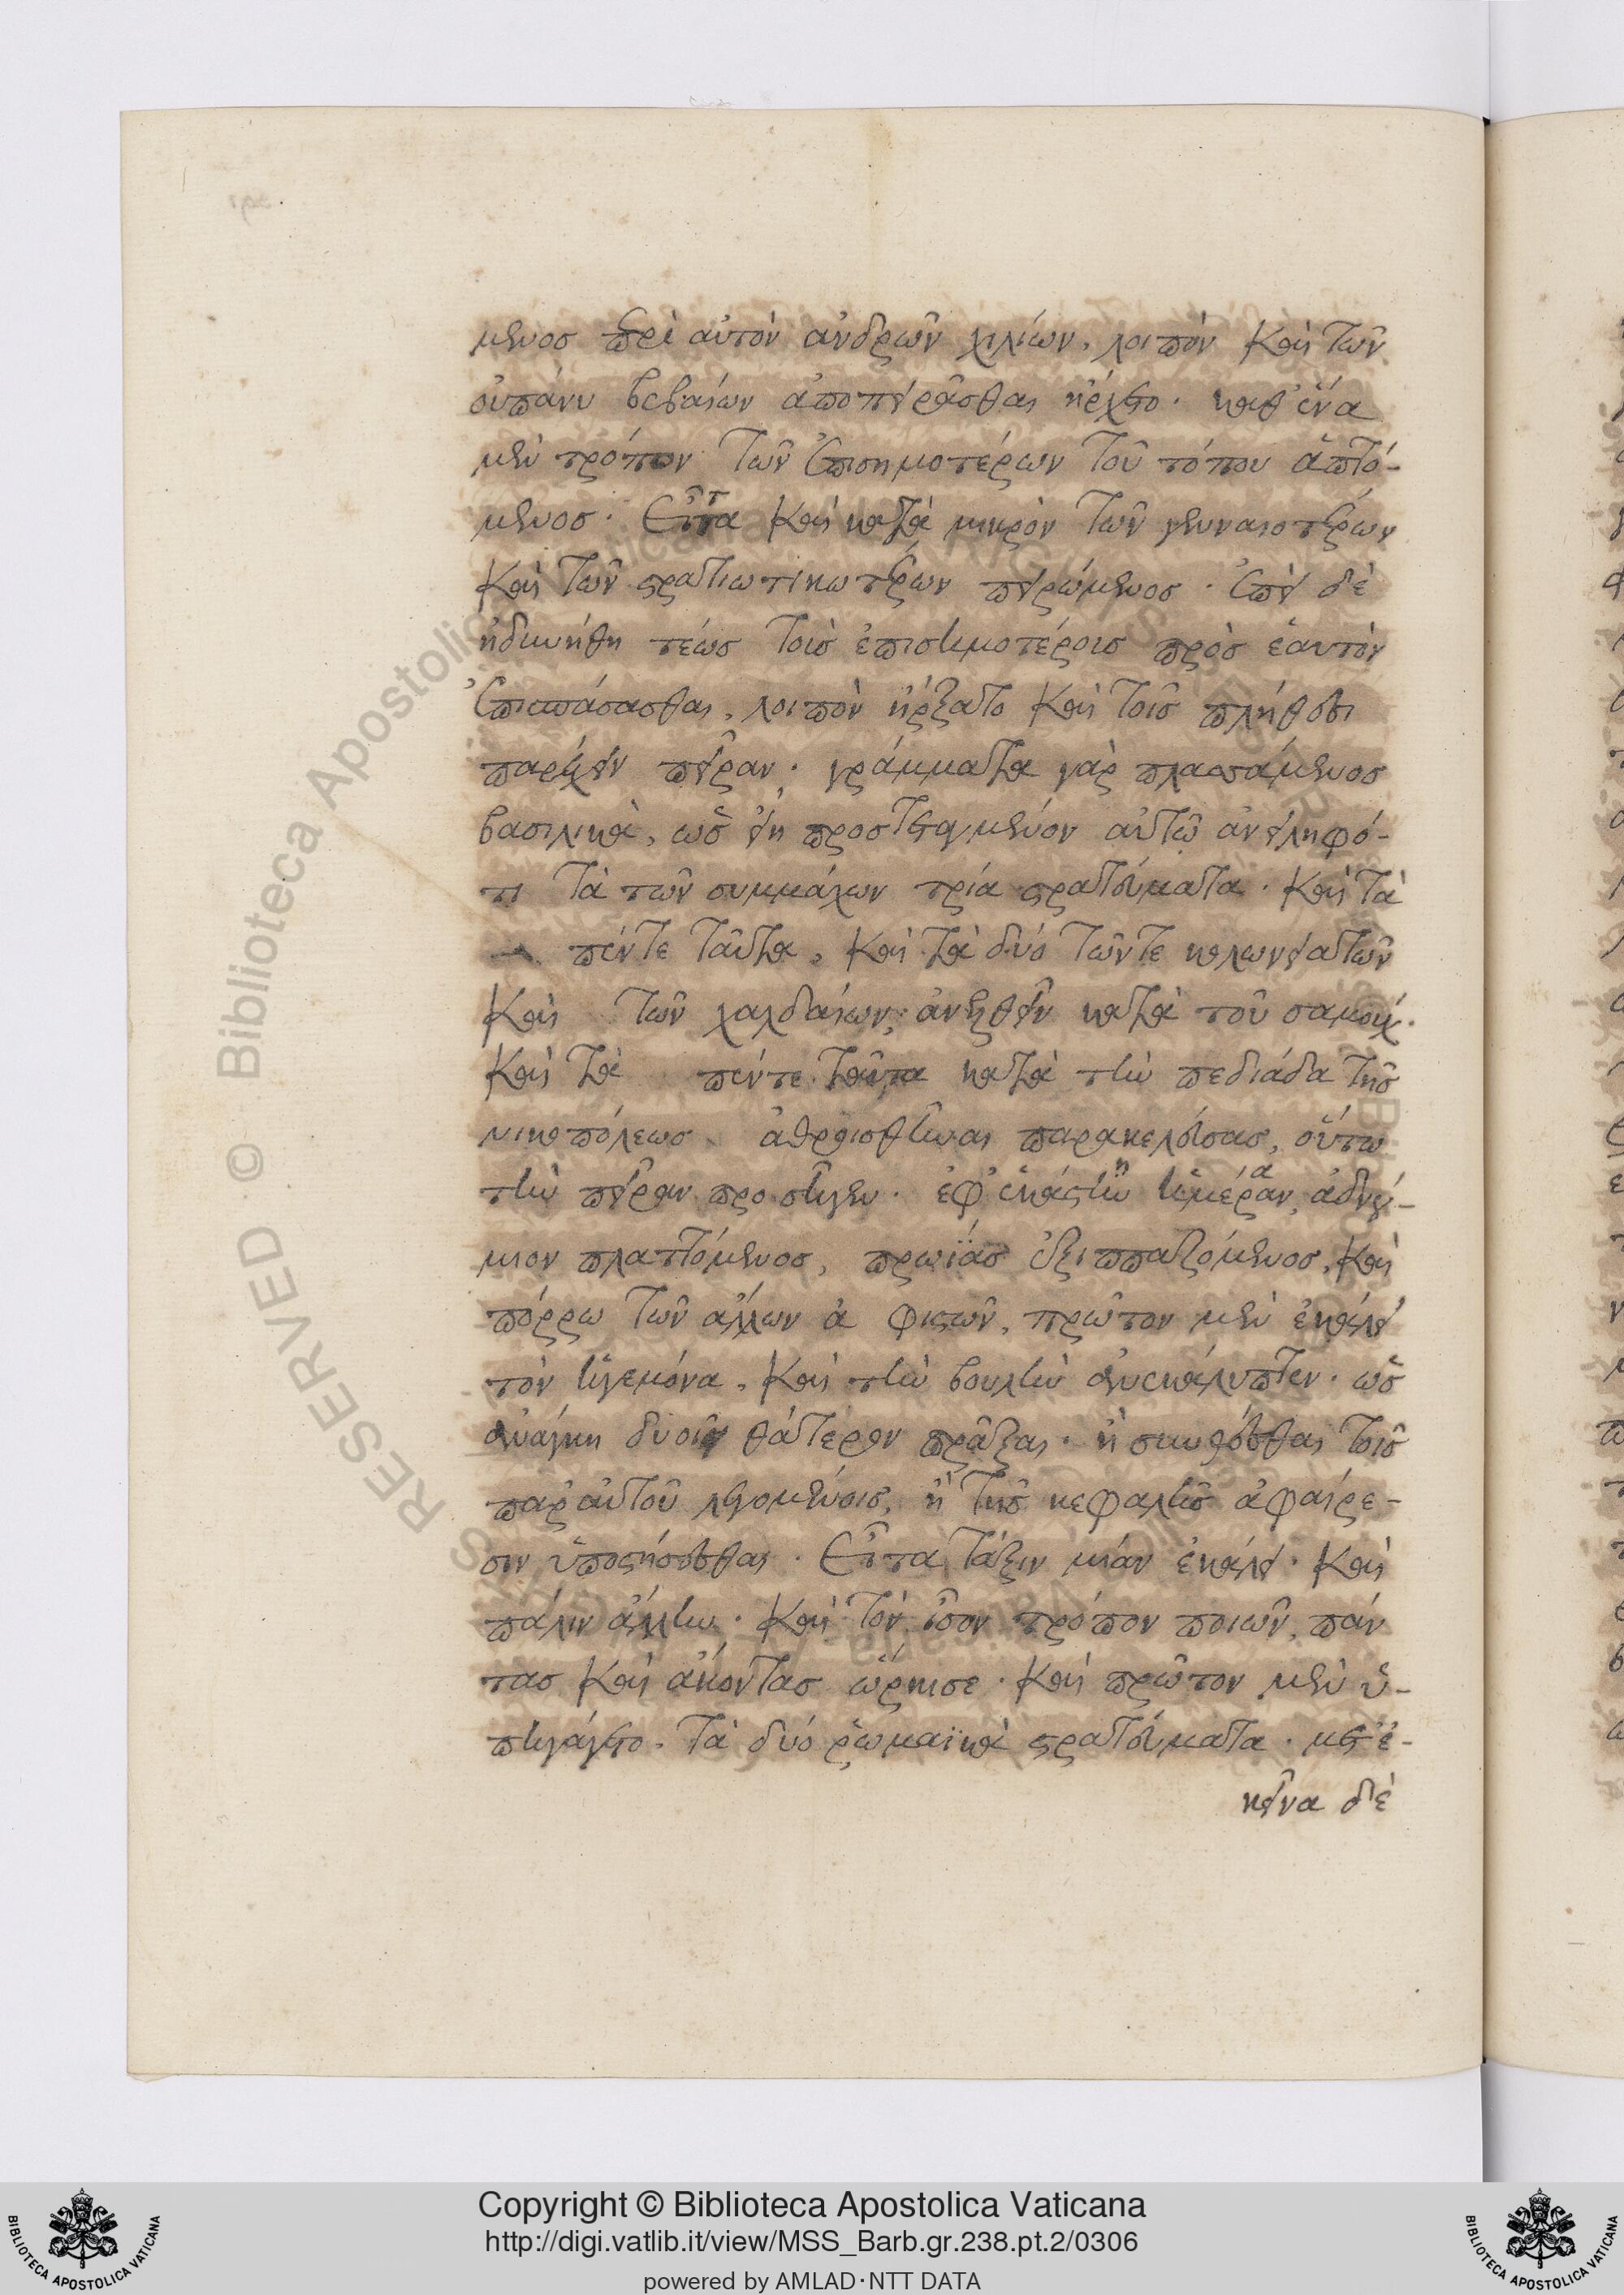 μενος περὶ αὐτὸν ἀνδρῶν χιλίων, λοιπὸν καὶ τῶν
οὐπάνυ βεβαίων ἀποπειρᾶσθαι ἤρχετο. καθ' ἕνα
μὲν τρόπον τῶν ἐπισημοτέρων τοῦ τόπου ἁπτό-
μενος. Εἶτα καὶ κατὰ μικρὸν τῶν γενναιοτέρων
καὶ τῶν στρατιωτικωτέρων πειρώμενος. ἐπεὶ δὲ
ἠδυνήθη τέως τοὺς ἐπισημοτέροις πρὸς ἑαυτὸν
ἐπισπάσασθαι, λοιπὸν ἤρξατο καὶ τοῖς πλήθεσι
παρέχειν πεῖραν. γράμματα γὰρ πλασάμενος
βασιλικὰ, ὡς εἴη προστεταγμένον αὐτῷ ἀνειληφό-
τι τὰ τῶν συμμάχων τρία στρατεύματα. καὶ τὰ
πέντε ταῦτα, καὶ τὰ δύο τῶντε κολωνειατῶν
καὶ τῶν χαλδαίων, ἀνελθεῖν κατὰ τοῦ σαμουχ.
καὶ τὰ πέντε ταῦτα κατὰ τὴν πεδιάδα τῆς
νικοπόλεως ἀθροισθῆναι παρακελεύσας, οὕτω
τὴν πεῖραν προσῆγεν. ἐφ' ἑκάστην ἡμέραν, ἀδνού-
μιον πλαττόμενος, πρωίας ἐξιππαζόμενος, καὶ
πόρρω τῶν ἄλλων ἀφιστῶν, πρῶτον μὲν ἐκάλει
τὸν ἡγεμόνα, καὶ τὴν βουλὴν ἀνεκάλυπτεν. ὡς
ἀνάγκη δυοῖν θάτερον πρᾶξαι. ἢ πιθέσθαι τοῖς
παρ' αὐτοῦ λεγομένοις, ἢ τῆς κεφαλῆς ἀφαίρε-
σιν ὑποστήσεσθαι. Εἶτα τάξιν μίαν ἐκάλει. καὶ
πάλιν ἄλλην. καὶ τὸν ἴσον τρόπον ποιῶν, πάν
τας καὶ ἄκοντας ὥρκισε. καὶ πρῶτον μὲν ὑ-
πηγάγετο, τὰ δύο ῥωμαϊκὰ στρατεύματα. μετ' ἐ-
κεῖνα δὲ
Copyright © Biblioteca Apostolica Vaticana
http://digi.vatlib.it/view/MSS_Barb.gr.238.pt.2/0306
powered by AMLAD·NTT DATA